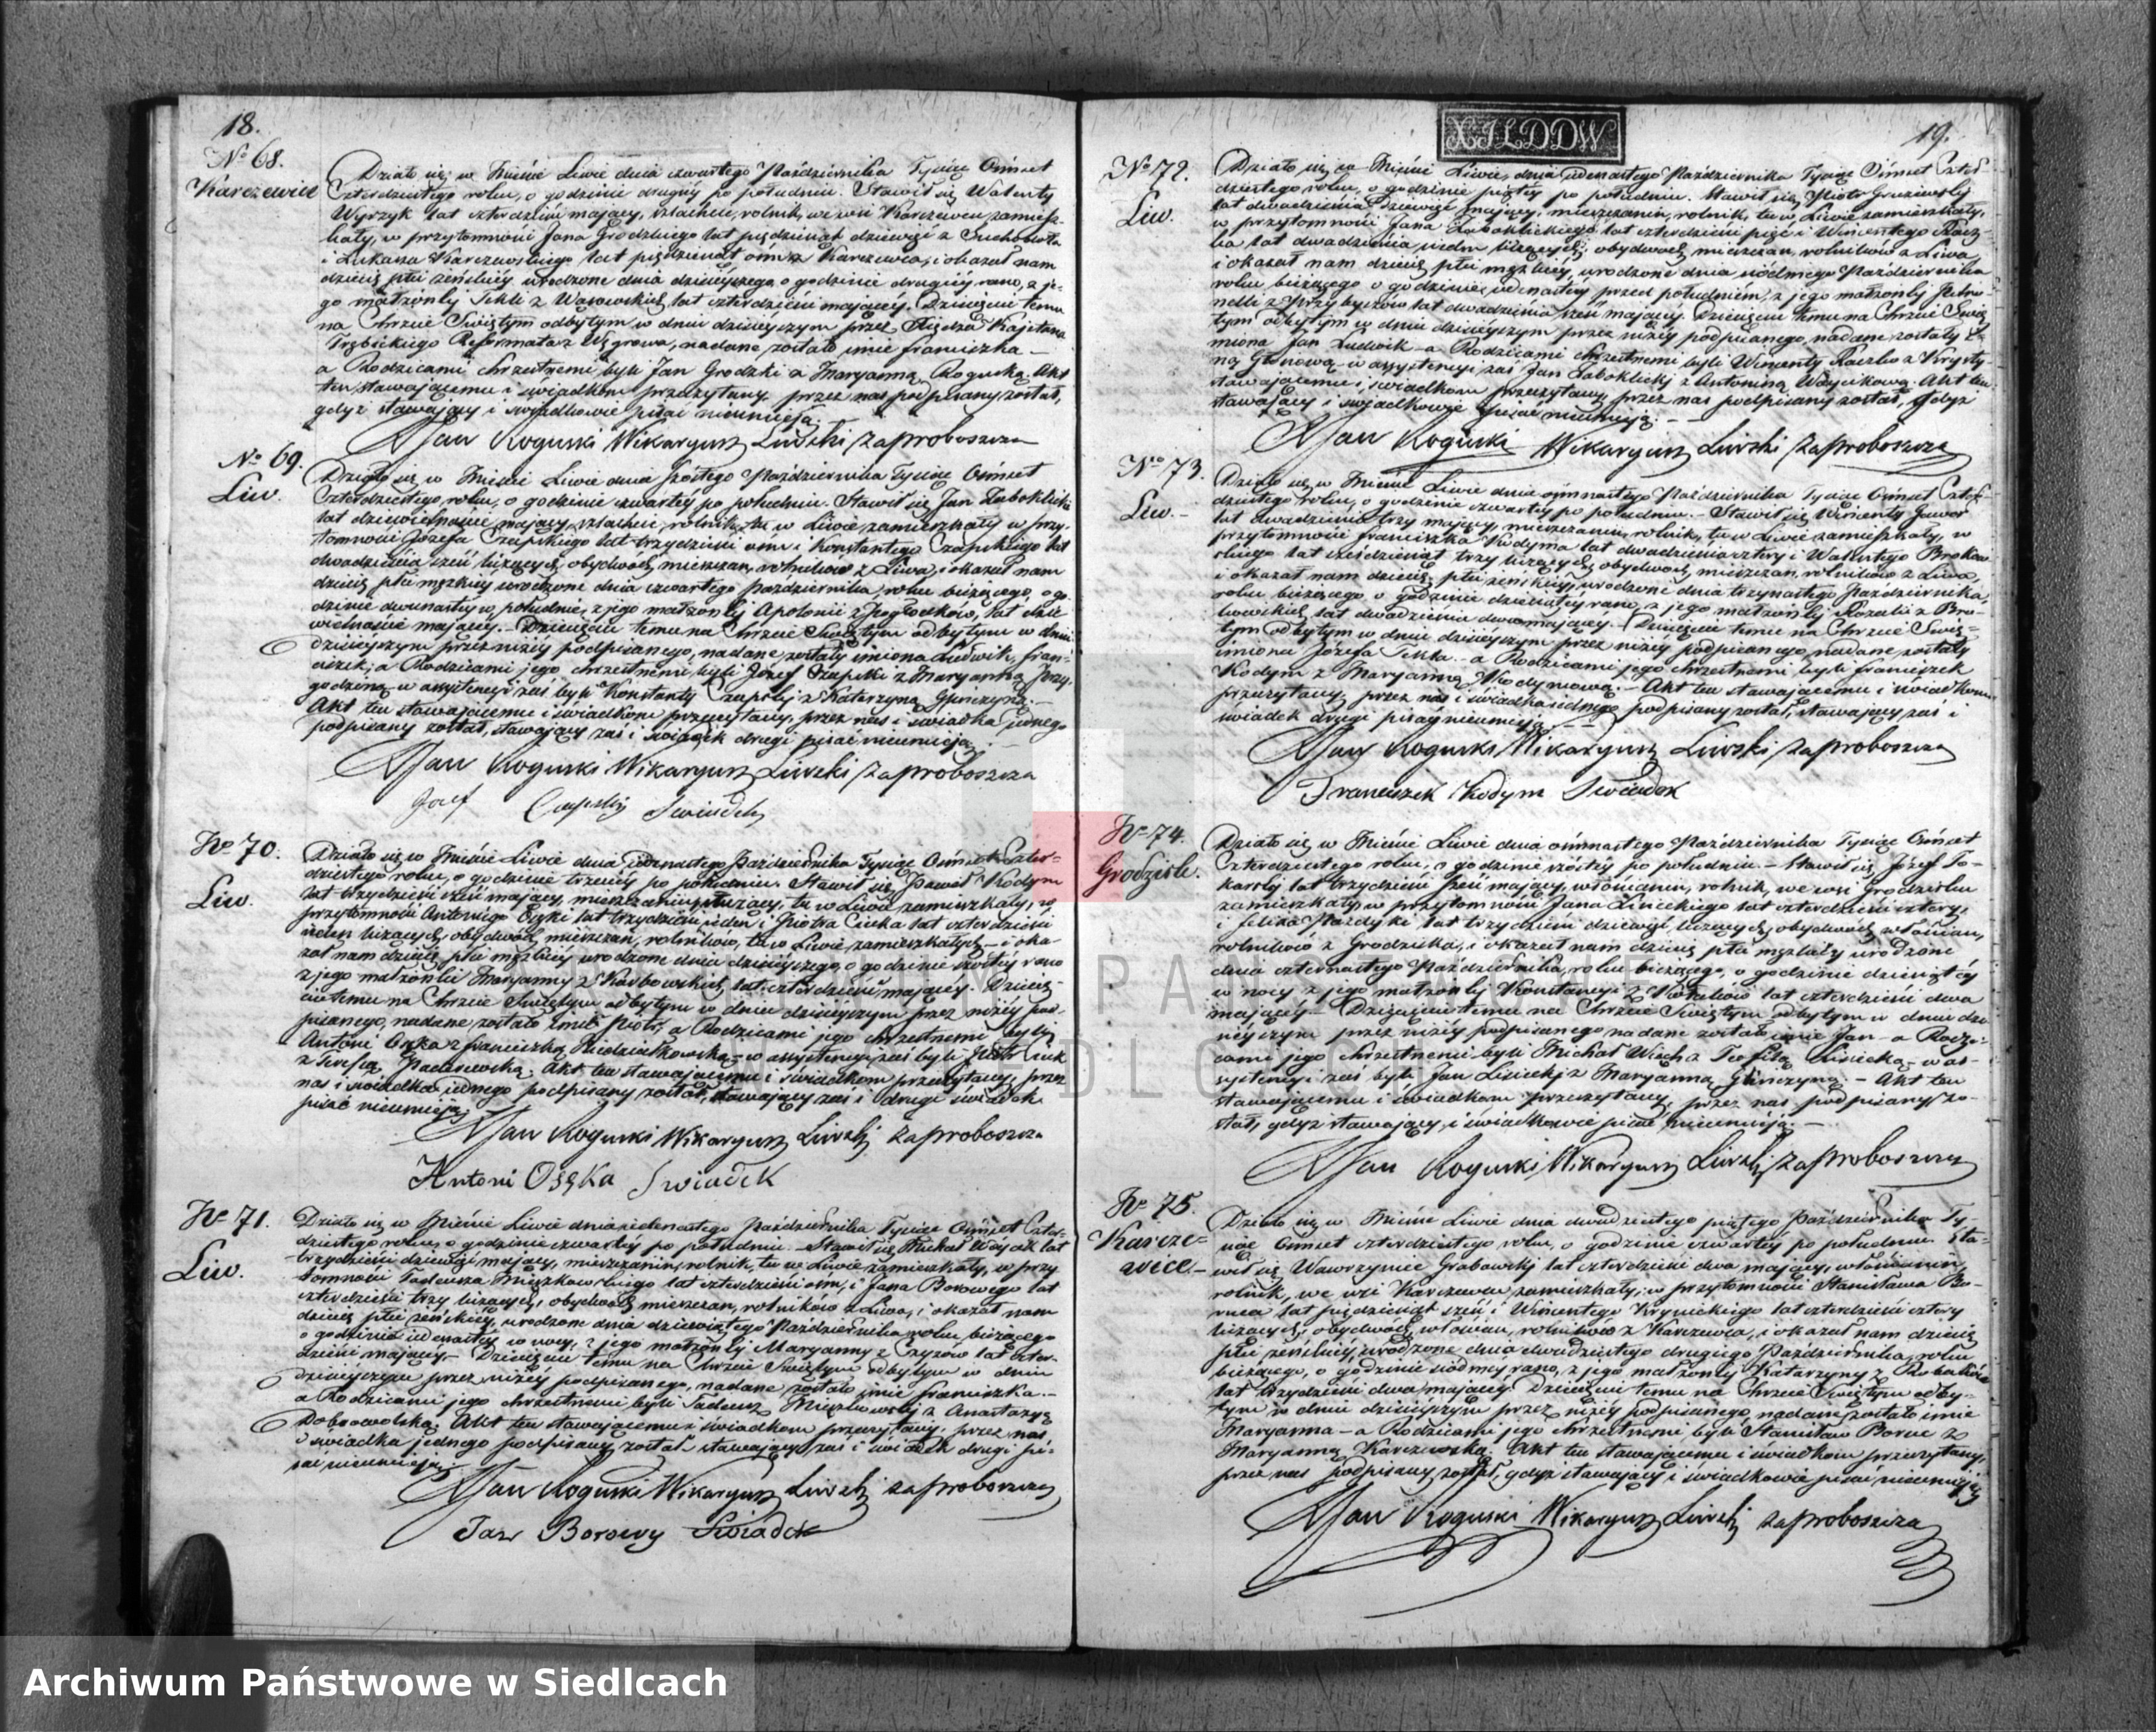 18.
No 68.
Karczewice
Działo się w Mieście Liwie dnia czwartego Października Tysiąc Ośmset
Czterdziestego roku, o godzinie drugiéj po południu. Stawił się Walenty
Wyrzyk lat czterdzieści mający, szlachcic, rolnik, we wsi Karczewcu zamiesz-
kały, w przytomności Jana Grodzkiego lat pięćdziesiąt dziewięć z
i Łukasza Karczewskiego lat pięćdziesiąt ośm z Karczewca, i okazał nam
dziecię płci żeńskiéj urodzone dnia dzisiejszego o godzinie drugiéj rano, z je-
go małżonki Tekli z Wąsowskich lat czterdzieści mającéj. Dziecięciu temu
na Chrzcie Świętym odbytym w dniu dzisiejszym przez Księdza Kajetana
Reformata z Węgrowa, nadane zostało imie Franciszka –
a Rodzicami chrzestnemi byli Jan Grodzki z Maryanną Roguską. Akt
ten stawającemu i świadkom przeczytany przez nas podpisany został,
gdyż stawający i świadkowie pisać nieumieją.
XJan Roguski Wikaryusz Liwski zaproboszcza
No 69.
Liw.
Działo się w Mieście Liwie dnia szóstego Października Tysiąc Ośmset
Czterdziestego roku, o godzinie czwartéj po południu. Stawił się Jan Zaboklicki
lat dziewiętnaście mający, szlachcic, rolnik, tu w Liwie zamieszkały w przy-
tomności Józefa Czapskiego lat trzydzieści ośm i Konstantego Czapskiego lat
dwadzieścia sześć liczących, obydwóch mieszczan, rolników z Liwa, i okazał nam
dziecię płci męzkiéj urodzone dnia czwartego Października roku bieżącego, o go-
dzinie dwunastéj w południe, z jego małżonki Apolonii z lat dzie-
więtnaście mającéj. – Dziecięciu temu na Chrzcie Świętym odbytym w dniu
dzisiejszym przez niżéj podpisanego, nadane zostały imiona Ludwik, Fran-
ciszek; a Rodzicami jego chrzestnemi byli Józef Czapski z Maryanną
w assystencyi zaś byli Konstanty Czapski z Katarzyną
Akt ten stawającemu i świadkom przeczytany, przez nas i świadka jednego
podpisany został, stawający zaś i świadek drugi pisać nieumieją.
XJan Roguski Wikaryusz Liwski zaproboszcza
Józef Czapski Swiadek
No 70.
Liw.
Działo się w Mieście Liwie dnia jedenastego Października Tysiąc Ośmset Czter-
dziestego roku, o godzinie trzeciéj po południu. Stawił się Paweł Kodym
lat trzydzieści sześć mający, mieszczanin, tu w Liwie zamieszkały, w
przytomności Antoniego Osęki lat trzydzieści jeden i Piotra Ciuka lat czterdzieści
jeden liczących, obydwóch mieszczan, rolników, tu w Liwie zamieszkałych – i oka-
zał nam dziecię płci męzkiéj urodzone dnia dzisiejszego, o godzinie szóstéj rano
z jego małżonki Maryanny z Karbowskich, lat czterdzieści mającéj. Dziecię-
ciu temu na Chrzcie Świętym odbytym w dniu dzisiejszym przez niżéj pod-
pisanego, nadane zostało imie Piotr, a Rodzicami jego chrzestnemi byli
Antoni Osęka z Franciszką Niedziałkowską – w assystencyi zaś byli Piotr Ciuk
z Teresą. Akt ten stawającemu i świadkom przeczytany, przez
nas i świadka jednego podpisany został, stawający zaś i drugi świadek
pisać nieumieją.
XJan Roguski Wikaryusz Liwski zaproboszcza
Antoni Osęka Swiadek
No 71.
Liw.
Działo się w Mieście Liwie dnia jedenastego Października Tysiąc Ośmset Czter-
dziestego roku, o godzinie czwartéj po południu. – Stawił się Michał Wójcik lat
trzydzieści dziewięć mający, mieszczanin, rolnik, tu w Liwie zamieszkały, w przy-
tomności Tadeusza Mieszkowskiego lat czterdzieści ośm, i Jana Borowego lat
czterdzieści trzy liczących, obydwóch mieszczan, rolników z Liwa, i okazał nam
dziecię płci żeńskiéj, urodzone dnia dziewiątego Października roku bieżącego
o godzinie jedenastéj w nocy, z jego małżonki Maryanny z Czyżów lat czter-
dzieści mającéj. – Dziecięciu temu na Chrzcie Świętym odbytym w dniu
dzisiejszym przez niżéj podpisanego, nadane zostało imie Franciszka. –
a Rodzicami jego chrzestnemi byli Tadeusz Mieszkowski z Anastazyą
Dobrowolską. Akt ten stawającemu i świadkom przeczytany, przez nas
i świadka jednego podpisany został stawający zaś i świadek drugi pi-
sać nieumieją.
XJan Roguski Wikaryusz Liwski zaproboszcza
Jan Borowy Swiadek
XJLDDW
19.
No 72.
Liw.
Działo się w Mieście Liwie, dnia jedenastego Października Tysiąc Ośmset Czter-
dziestego roku, o godzinie piątéj po południu. Stawił się Piotr Gruzewski
lat dwadzieścia dziewięć mający, mieszczanin, rolnik, tu w Liwie zamieszkały,
w przytomności Jana Zaboklickiego lat czterdzieści pięć i Wincentego Racz-
ka lat dwadzieścia siedm liczących, obydwóch mieszczan, rolników z Liwa,
i okazał nam dziecię płci męzkiéj, urodzone dnia siódmego Października
roku bieżącego o godzinie jedenastéj przed południem, z jego małżonki Petro-
nelli z Przybyszów lat dwadzieścia sześć mającéj. Dziecięciu temu na Chrzcie Świę-
tym odbytym w dniu dzisiejszym przez niżéj podpisanego, nadane zostały i-
miona Jan Ludwik – a Rodzicami chrzestnemi byli Wincenty Raczko z Krysty-
ną – w assystencyi zaś Jan Zaboklicki z Antoniną Wójcikową. Akt ten
stawającemu i świadkom przeczytany, przez nas podpisany został, gdyż
stawający i świadkowie pisać nieumieją.
XJan Roguski Wikaryusz Liwski zaproboszcza
No 73.
Liw.
Działo się w Mieście Liwie dnia ośmnastego Października Tysiąc Ośmset Czter-
dziestego roku, o godzinie czwartéj po południu. – Stawił się Wincenty Jawor
lat dwadzieścia trzy mający, mieszczanin, rolnik, tu w Liwie zamieszkały, w
przytomności Franciszka Kodyma lat dwadzieścia cztery i Walentego
lat sześćdziesiąt trzy liczących, obydwóch mieszczan, rolników z Liwa,
i okazał nam dziecię płci żeńskiéj, urodzone dnia trzynastego Października
roku bieżącego, o godzinie dziesiątéj rano, z jego małżonki Rozalii z
lat dwadzieścia dwa mającéj. – Dziecięciu temu na Chrzcie Świę-
tym odbytym w dniu dzisiejszym przez niżéj podpisanego, nadane zostały
imiona Józefa Tekla – a Rodzicami jego chrzestnemi byli Franciszek
Kodym z Maryanną Kodymową. – Akt ten stawającemu i świadkom
przeczytany, przez nas i świadka jednego podpisany został, stawający zaś i
świadek drugi pisać nieumieją.
XJan Roguski Wikaryusz Liwski zaproboszcza
Franciszek Kodym Swiadek
No 74.
Grodzisk.
Działo się w Mieście Liwie dnia ośmnastego Października Tysiąc Ośmset
Czterdziestego roku, o godzinie szóstéj po południu. – Stawił się Józef To-
karski lat trzydzieści sześć mający, włościanin, rolnik, we wsi Grodzisku
zamieszkały, w przytomności Jana Lisieckiego lat czterdzieści cztery,
i Felixa lat trzydzieści dziewięć liczących, obydwóch włościan,
rolników z Grodziska, i okazał nam dziecię płci męzkiéj urodzone
dnia czternastego Października, roku bieżącego, o godzinie dziesiątéj
w nocy z jego małżonki Konstancyi z lat czterdzieści dwa
mającéj. Dziecięciu temu na Chrzcie Świętym odbytym w dniu dzi-
siejszym przez niżéj podpisanego nadane zostało imie Jan – a Rodzi-
cami jego chrzestnemi byli Michał Wich z Teofilą Lisiecką – w as-
systencyi zaś byli Jan Lisiecki z Maryanną – Akt ten
stawającemu i świadkom przeczytany, przez nas podpisany zo-
stał, gdyż stawający i świadkowie pisać nieumieją. –
XJan Roguski Wikaryusz Liwski zaproboszcza
No 75.
Karcze-
wice.
Działo się w Mieście Liwie dnia dwudziestego piątego Października Ty-
siąc Ośmset czterdziestego roku, o godzinie czwartéj po południu. Sta-
wił się Wawrzyniec Grabowski lat czterdzieści dwa mający, włościanin,
rolnik, we wsi Karczewcu zamieszkały, w przytomności Stanisława Bo-
ruca lat pięćdziesiąt sześć i Wincentego Krynickiego lat czterdzieści cztery
liczących, obydwóch włościan, rolników z Karczewca, i okazał nam dziecię
płci żeńskiéj urodzone dnia dwudziestego drugiego Października, roku
bieżącego, o godzinie siódméj rano, z jego małżonki Katarzyny z
lat trzydzieści dwa mającéj. Dziecięciu temu na Chrzcie Świętym odby-
tym w dniu dzisiejszym przez niżéj podpisanego, nadane zostało imie
Maryanna – a Rodzicami jego chrzestnemi byli Stanisław Boruc z
Maryanną Karczewską. Akt ten stawającemu i świadkom przeczytany,
przez nas podpisany został, gdyż stawający i świadkowie pisać nieumieją.
XJan Roguski Wikaryusz Liwski zaproboszcza
Archiwum Państwowe w Siedlcach